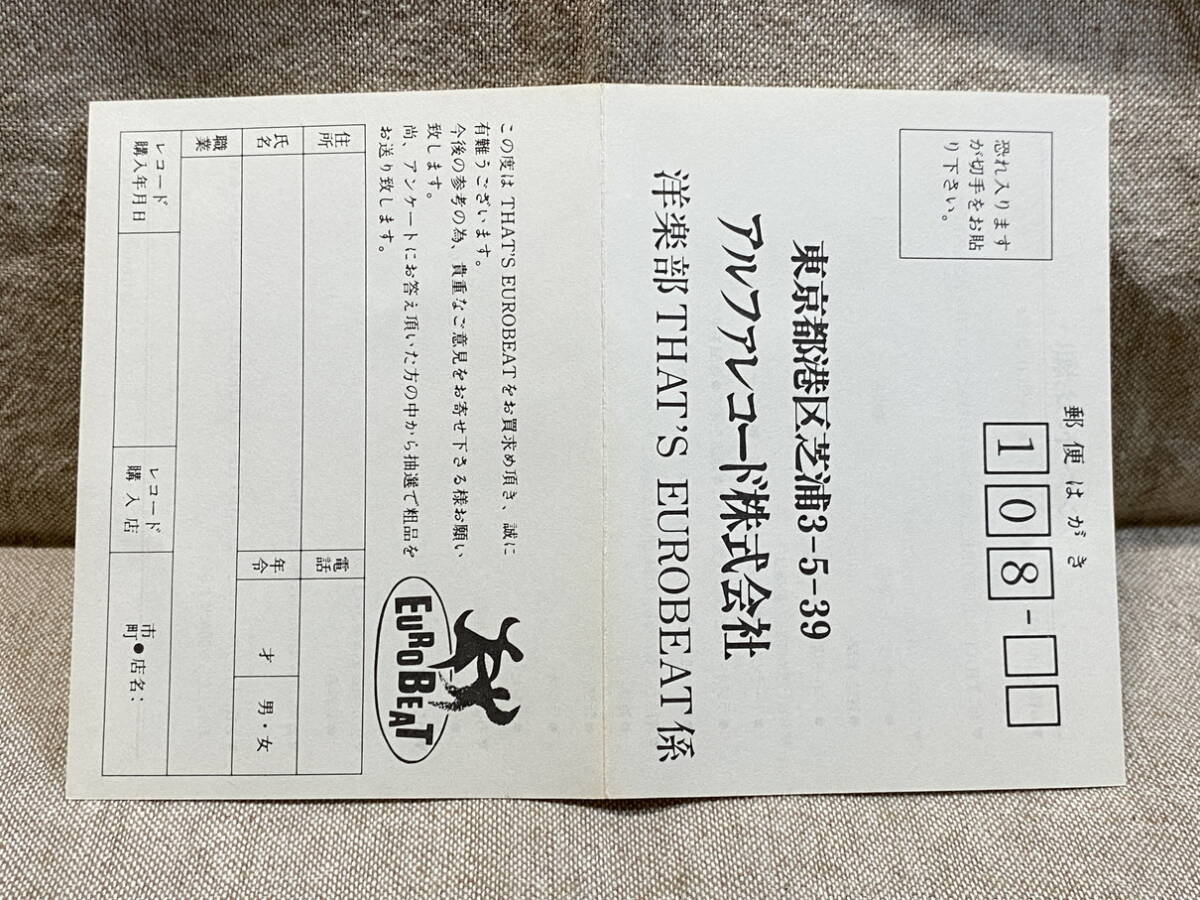 郵便はがき
108-
恐れ入ります
が切手をお貼
り下さい。
東京都港区芝浦3-5-39
アルファレコード株式会社
洋楽部THAT'S EUROBEAT係
この度はTHAT'S EUROBEATをお買求め頂き、誠に
有難うございます。
今後の参考の為、貴重なご意見をお寄せ下さる様お願い
致します。
尚、アンケートにお答え頂いた方の中から抽選で粗品を
お送り致します。
EUROBEAT
住所
電話
氏名
年令
才
男・女
職業
レコード
購入年月日
レコード
購入店
市
町●店名: